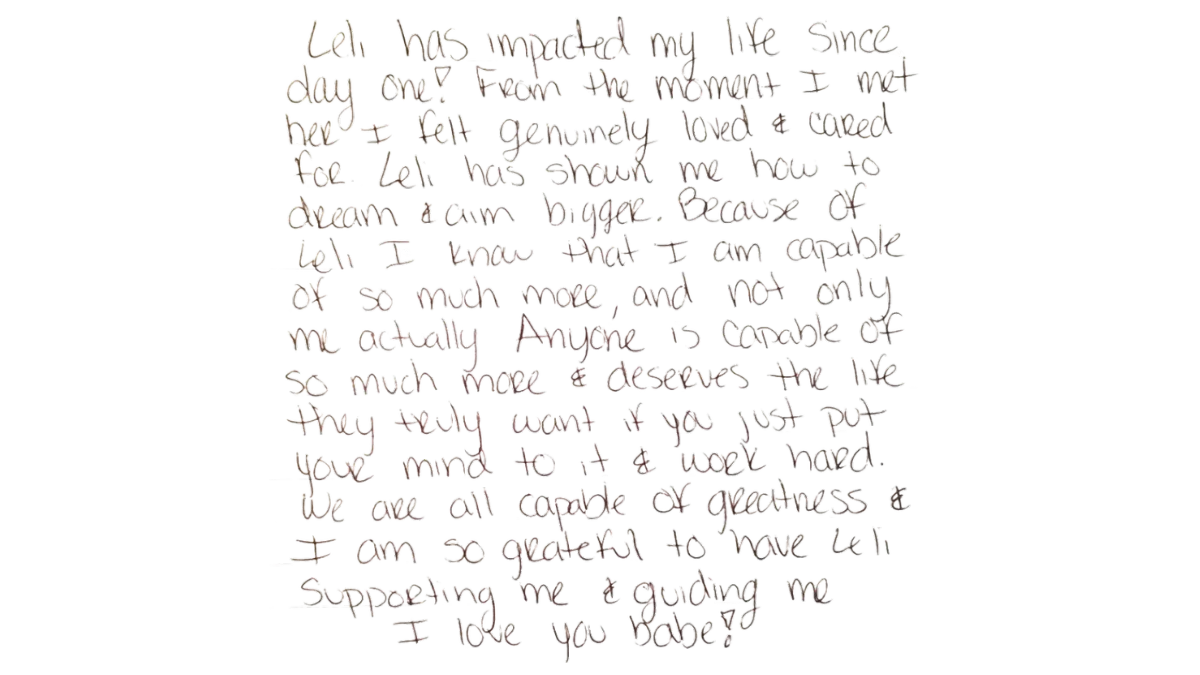 Leli has impacted my life since
day one! From the moment I met
her I felt genuinely loved & cared
for. Leli has shown me how to
dream & aim bigger. Because of
Leli I know that I am capable
of so much more, and not only
me actually Anyone is capable of
so much more & deserves the life
they truly want if you just put
your mind to it & work hard.
We are all capable of greatness &
I am so grateful to have Leli
Supporting me & guiding me
I love you babe!